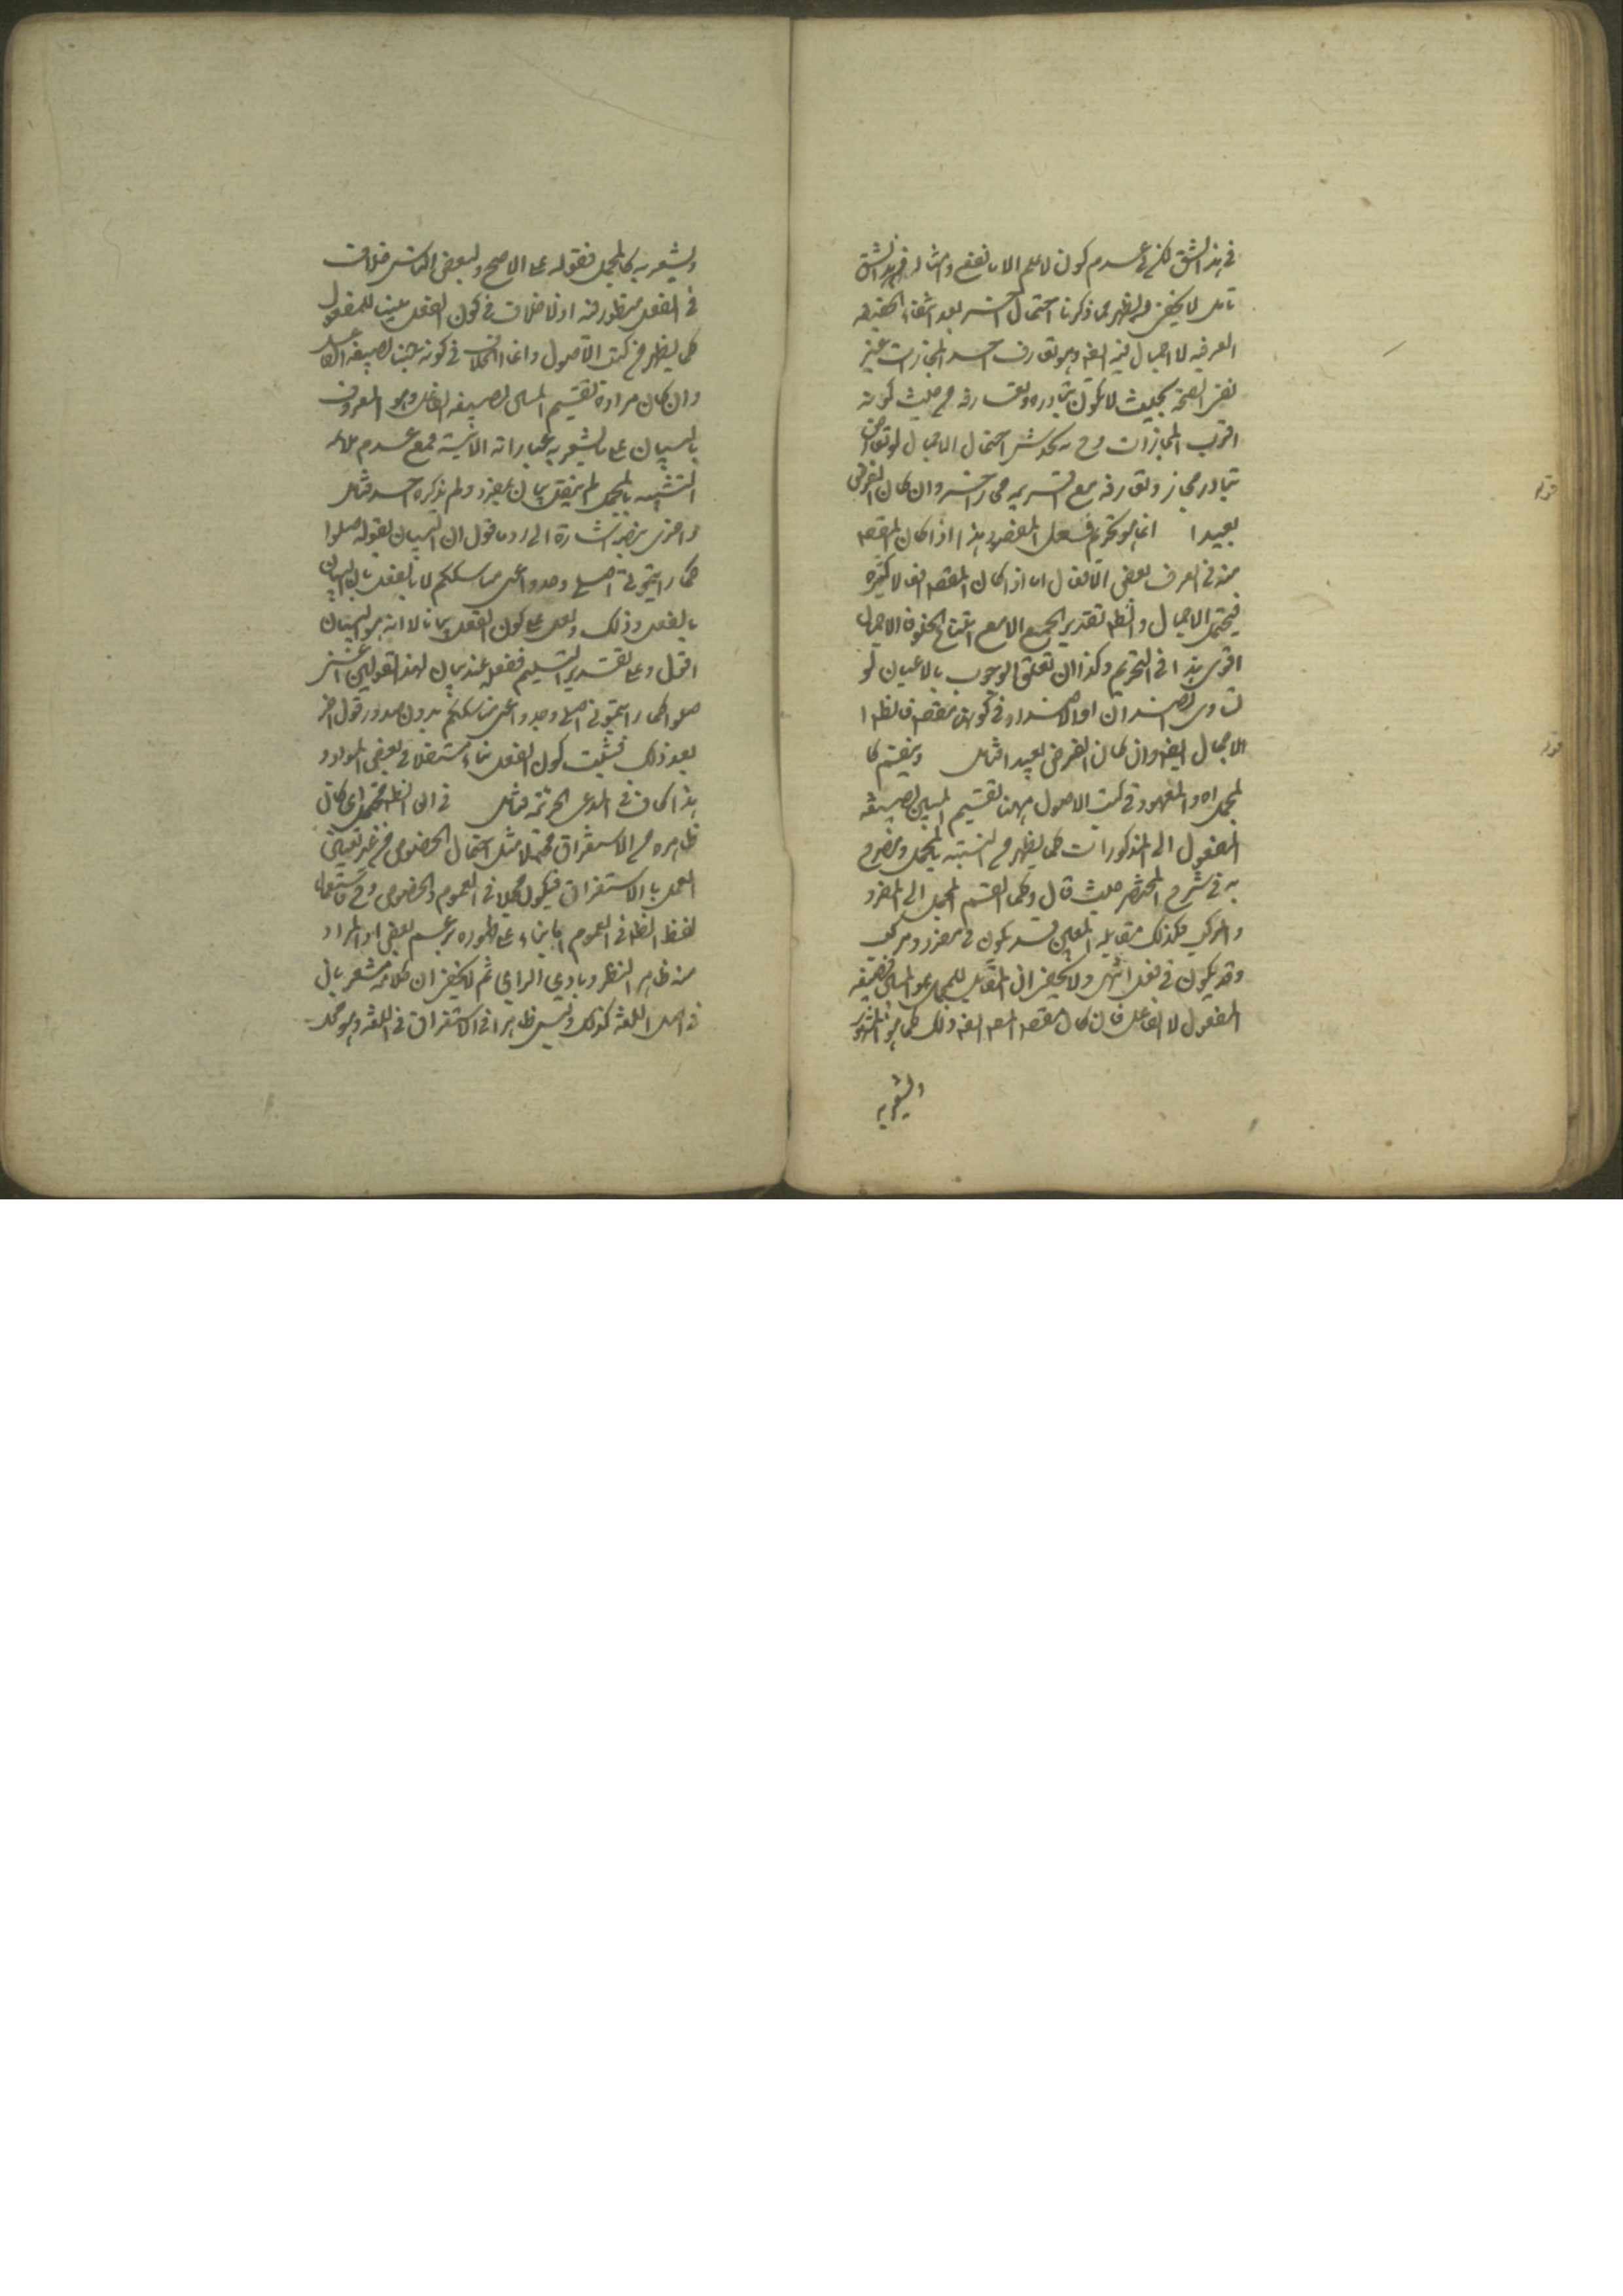 في هذا الشق لكن في عدم كون لا علم الا ما نفع وامثاله في هذا الشق
تامل لا يخفى ويظهر مما ذكرنا احتمال اخر بعد انتفاء الحقيقه
العرفيه لا اجمال فيه ايضه وهو تعارف احد المجازات غير
نفي الصحة بحيث لا يكون تبادره وتعارفه من حيث كونه
اقرب المجازات وح يخدش احتمال الاجمال لو تعارض
تبادر مجاز وتعارفه مع اقربيه مجاز اخر وان كان الفرض
بعيدا انما هو تحريم فعل المقصود هذا اذا كان المقصه
منه في العرف بعض الافعال اما اذا كان المقصه افعالا كثيره
فيحتمل الاجمال والظه تقدير الجميع الا مع
اقوى هذا في التحريم وكذا ان تعلق الوجوب بالاعيان لو
تساوى الضدان او الاضداد في كونها مقصه فالظه ا
الاجمال ايضه وان كان الفرض بعيدا فتامل وينقسم كا
لمجمل اه والمعهود في كتب الاصول ههنا تقسيم المبين بصيغه
المفعول الى المذكورات كما يظهر من التشبيه بالمجمل ومصرح
به في شرح المختصر حيث قال وكما انقسم المجمل الى المفرد
والمركب فكذلك مقابله المبين قد يكون في مفرد ومركب
وقد يكون في فعل انتهى ولا يخفى ان المقابل للمجمل هو المبين بصيغه
المفعول لا الفاعل فان كان مقصه المصه ايضه ذلك كما هو المشهور
ويشعر به
قوله
قوله
ويشعر به كالمجمل فقوله على الاصح ولبعض الناس خلاف
في الفعل منظور فيه اذ لا خلاف في كون الفعل مبينا للمفعول
كما يظهر من كتب الاصول وانما الخلاف في كونه مبينا بصيغه الفاعل
وان كان مراده تقسيم المبين بصيغه الفاعل وهو المعروف
بالبيان على ما يشعر به عباراته الاتية فمع عدم ملائمه
التشبيه بالمجمل لم ينقل بيان بمفرد ولم يذكره احد فتامل
واعترض اشارة الى رد ما قول ان البيان بقوله صلوا
كما رايتموني اصلي وخذوا عني مناسككم لا بالفعل بان البيان
بالفعل وذلك دليل على كون الفعل بيانا لا انه هو البيان
اقول وعلى تقدير التسليم ففعله عند بيان لهذا القولين اعني
صلوا كما رايتموني اصلي وخذوا عني مناسككم بدون صدور قول اخر
بعد ذلك فثبت كون الفعل بيانا مستقلا في بعض الموارد
هذا كاف في المدعى الجزئية فتامل في ان الظه محتمل اي كان
ظاهره من الاستغراق محتملا مثل احتمال الخصوص من غير تعيين
العمل بالاستغراق فيكون مجملا في العموم والخصوص وح فاستعمال
لفظ الظه في العموم اما بناء على ظهوره بزعم بعض او المراد
منه ظاهر النظر وبادي الراي ثم لا يخفى ان كلامه مشعر بان
في اصل اللغة كذلك وليس ظاهرا في الاستغراق في اللغة وهو محل